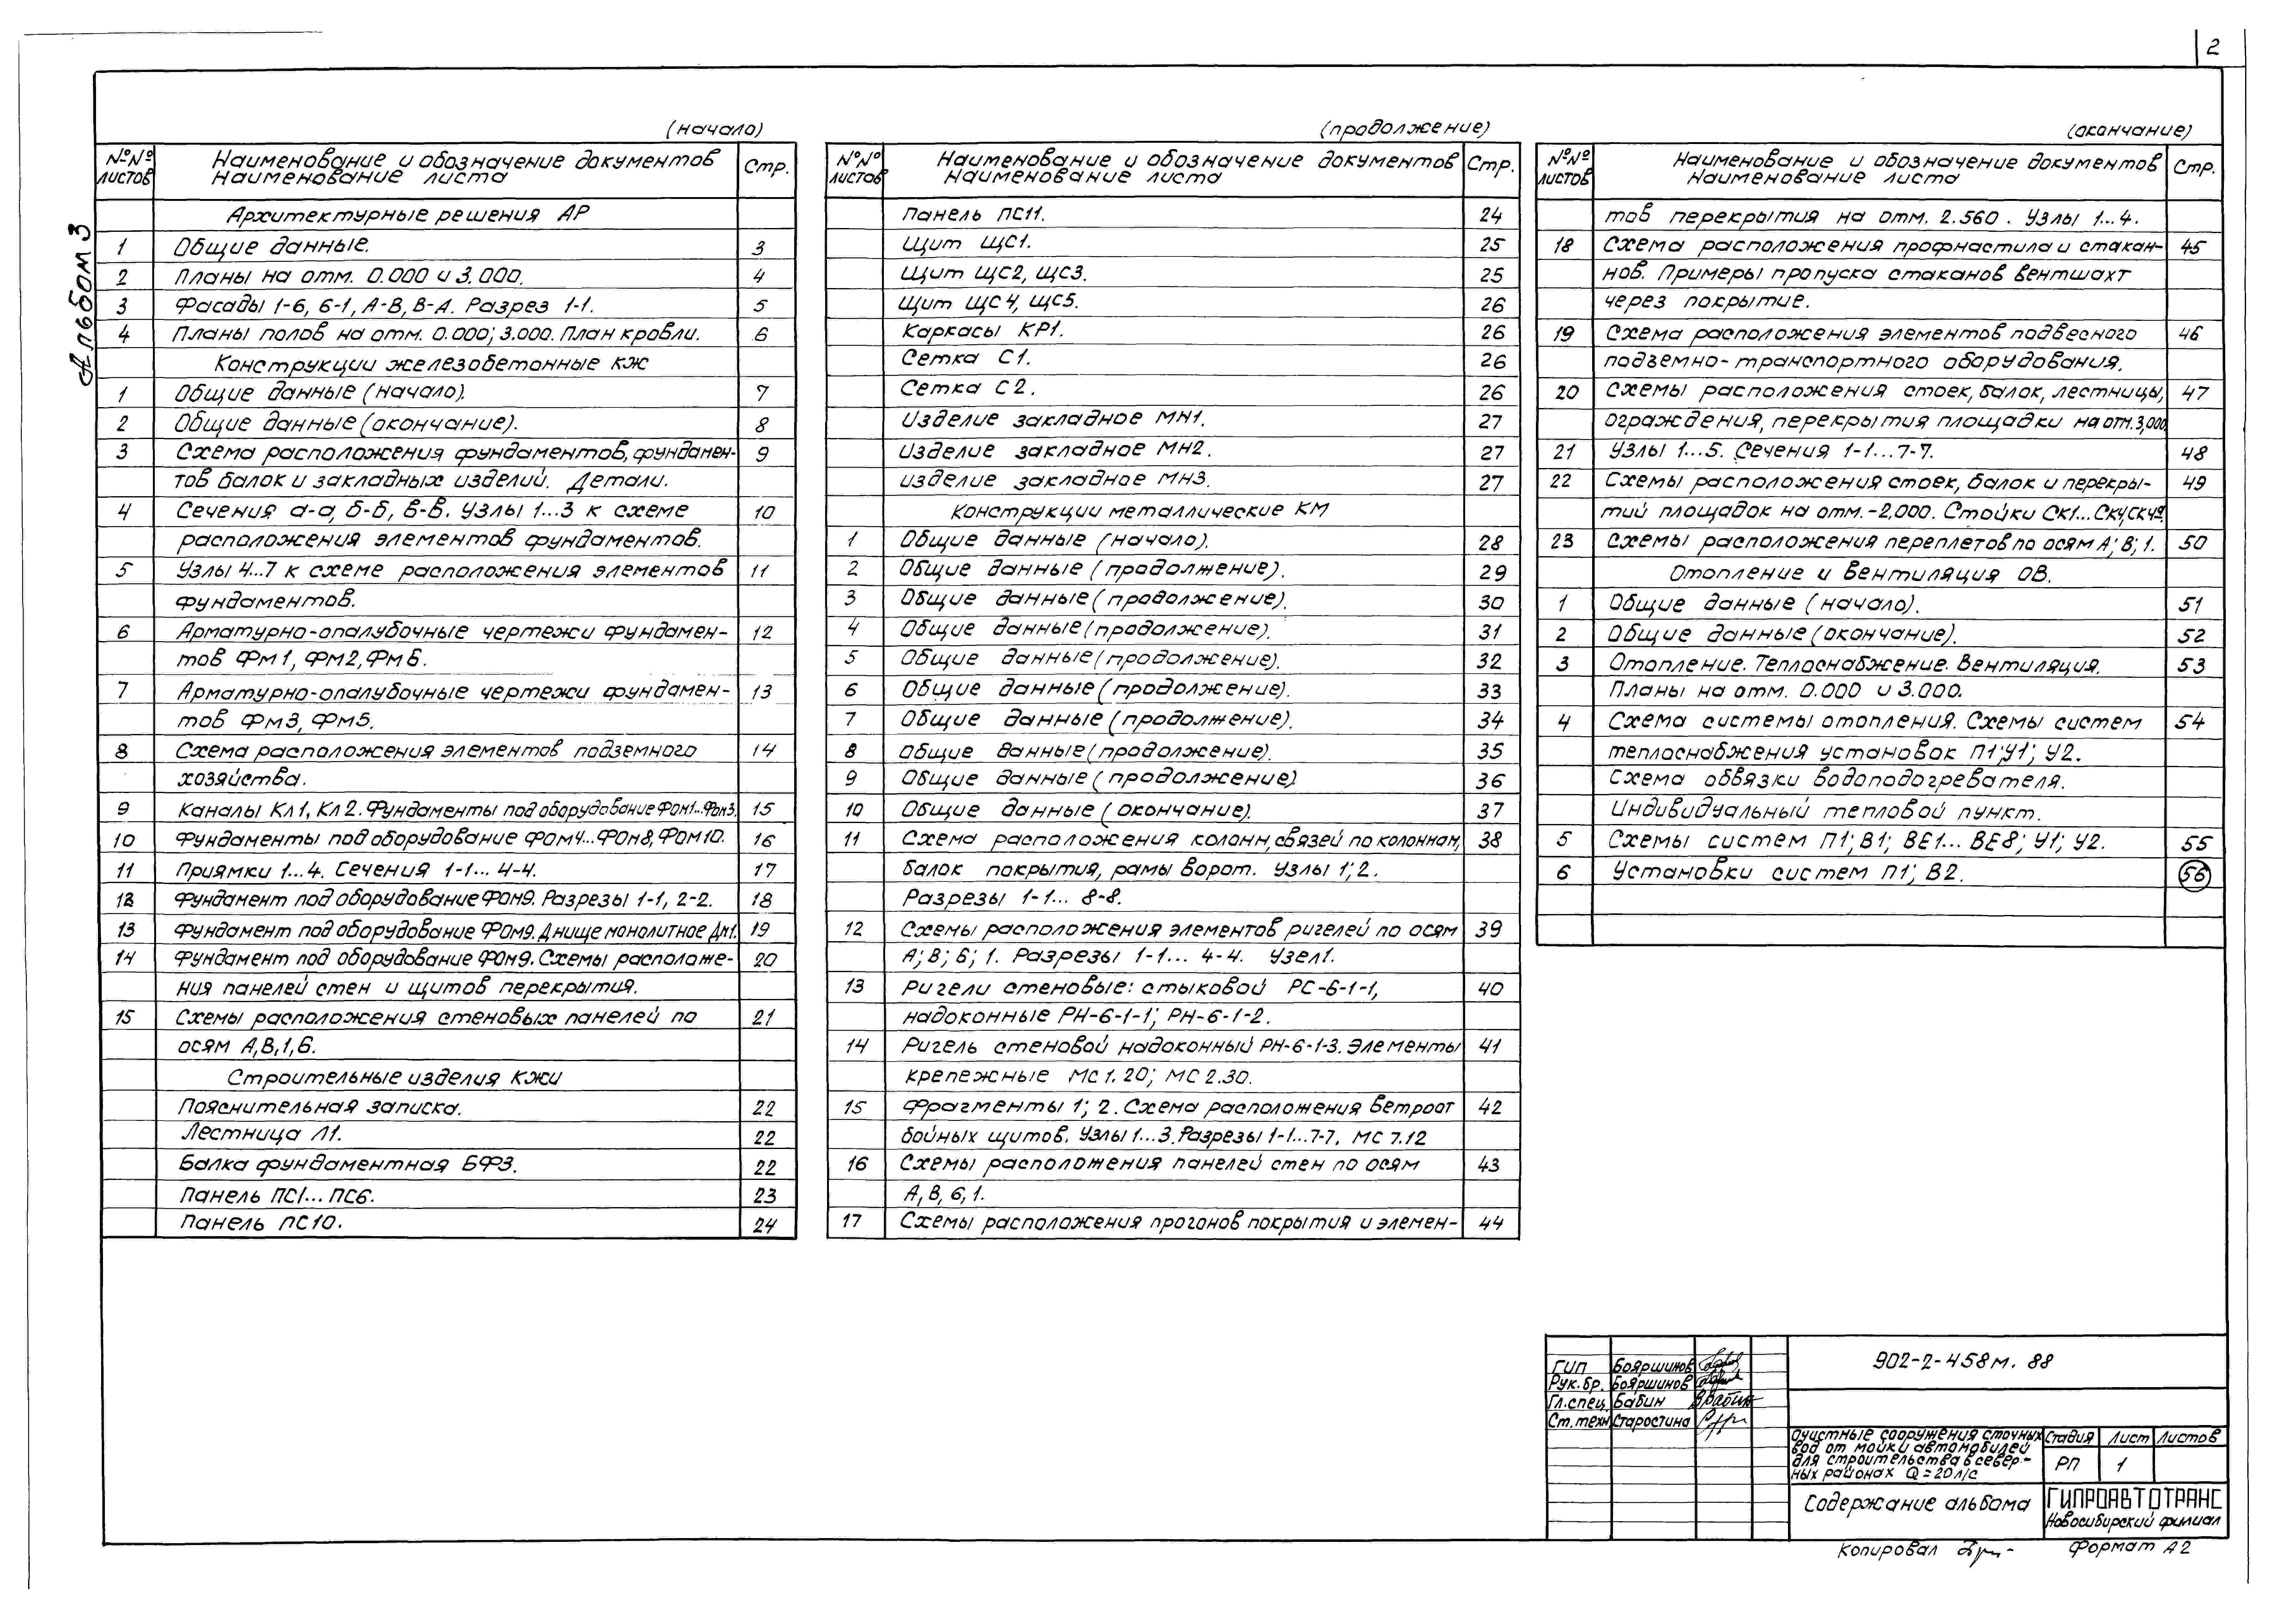 2
Альбом 3
(начало)
№№ листов Наименование и обозначение документов Наименование листа Стр.
Архитектурные решения АР
1 Общие данные. 3
2 Планы на отм. 0.000 и 3.000. 4
3 Фасады 1-6, 6-1, А-В, В-А. Разрез 1-1. 5
4 Планы полов на отм. 0.000; 3.000. План кровли. 6
Конструкции железобетонные КЖ
1 Общие данные (начало). 7
2 Общие данные (окончание). 8
3 Схема расположения фундаментов, фундамен- 9
тов балок и закладных изделий. Детали.
4 Сечения а-а, б-б, в-в. Узлы 1...3 к схеме 10
расположения элементов фундаментов.
5 Узлы 4...7 к схеме расположения элементов 11
фундаментов.
6 Арматурно-опалубочные чертежи фундамен- 12
тов Фм1, Фм2, Фм6.
7 Арматурно-опалубочные чертежи фундамен- 13
тов Фм3, Фм5.
8 Схема расположения элементов подземного 14
хозяйства.
9 Каналы Кл1, Кл2. Фундаменты под оборудование Фом1...Фом3. 15
10 Фундаменты под оборудование Фом4...Фом8, Фом10. 16
11 Приямки 1...4. Сечения 1-1...4-4. 17
12 Фундамент под оборудование Фом9. Разрезы 1-1, 2-2. 18
13 Фундамент под оборудование Фом9. Днище монолитное Дм1. 19
14 Фундамент под оборудование Фом9. Схемы расположе- 20
ния панелей стен и щитов перекрытия.
15 Схемы расположения стеновых панелей по 21
осям А, В, 1, 6.
Строительные изделия КЖИ
Пояснительная записка. 22
Лестница Л1. 22
Балка фундаментная БФ3. 22
Панель ПС1... ПС6. 23
Панель ПС10. 24
(продолжение)
№№ листов Наименование и обозначение документов Наименование листа Стр.
Панель ПС11. 24
Щит ЩС1. 25
Щит ЩС2, ЩС3. 25
Щит ЩС4, ЩС5. 26
Каркасы КР1. 26
Сетка С1. 26
Сетка С2. 26
Изделие закладное МН1. 27
Изделие закладное МН2. 27
изделие закладное МН3. 27
Конструкции металлические КМ
1 Общие данные (начало). 28
2 Общие данные (продолжение). 29
3 Общие данные (продолжение). 30
4 Общие данные (продолжение). 31
5 Общие данные (продолжение). 32
6 Общие данные (продолжение). 33
7 Общие данные (продолжение). 34
8 Общие данные (продолжение). 35
9 Общие данные (продолжение) 36
10 Общие данные (окончание). 37
11 Схема расположения колонн, связей по колоннам, 38
балок покрытия, рамы ворот. Узлы 1; 2.
Разрезы 1-1... 8-8.
12 Схемы расположения элементов ригелей по осям 39
А; В; 6; 1. Разрезы 1-1... 4-4. Узел 1.
13 Ригели стеновые: стыковой РС-6-1-1, 40
надоконные РН-6-1-1; РН-6-1-2.
14 Ригель стеновой надоконный РН-6-1-3. Элементы 41
крепежные МС1.20; МС2.30.
15 Фрагменты 1; 2. Схема расположения ветроот 42
бойных щитов. Узлы 1...3. Разрезы 1-1...7-7. МС 7.12
16 Схемы расположения панелей стен по осям 43
А, В, 6, 1.
17 Схемы расположения прогонов покрытия и элемен- 44
(окончание)
№№ листов Наименование и обозначение документов Наименование листа Стр.
тов перекрытия на отм. 2.560. Узлы 1...4.
18 Схема расположения профнастила и стакан- 45
нов. Примеры пропуска стаканов вентшахт
через покрытие.
19 Схема расположения элементов подвесного 46
подземно-транспортного оборудования.
20 Схемы расположения стоек, балок, лестницы, 47
ограждения, перекрытия площадки на отм. 3,000
21 Узлы 1...5. Сечения 1-1...7-7. 48
22 Схемы расположения стоек, балок и перекры- 49
тий площадок на отм.-2,000. Стойки СК1...
23 Схемы расположения переплетов по осям А; В; 1. 50
Отопление и вентиляция ОВ.
1 Общие данные (начало). 51
2 Общие данные (окончание). 52
3 Отопление. Теплоснабжение. Вентиляция. 53
Планы на отм. 0.000 и 3.000.
4 Схема системы отопления. Схемы систем 54
теплоснабжения установок П1; У1; У2.
Схема обвязки водоподогревателя.
Индивидуальный тепловой пункт.
5 Схемы систем П1; В1; ВЕ1... ВЕ8; У1; У2. 55
6 Установки систем П1; В2. 56
ГИП Бояршинов
Рук.бр. Бояршинов
Гл.спец. Бабин
Ст.техн Старостина
902-2-458м. 88
Очистные сооружения сточных
вод от мойки автомобилей
для строительства в север-
ных районах Q=20л/с
Стадия Лист Листов
РП 1
Содержание альбома
ГИПРОАВТОТРАНС
Новосибирский филиал
Копировал
Формат А2